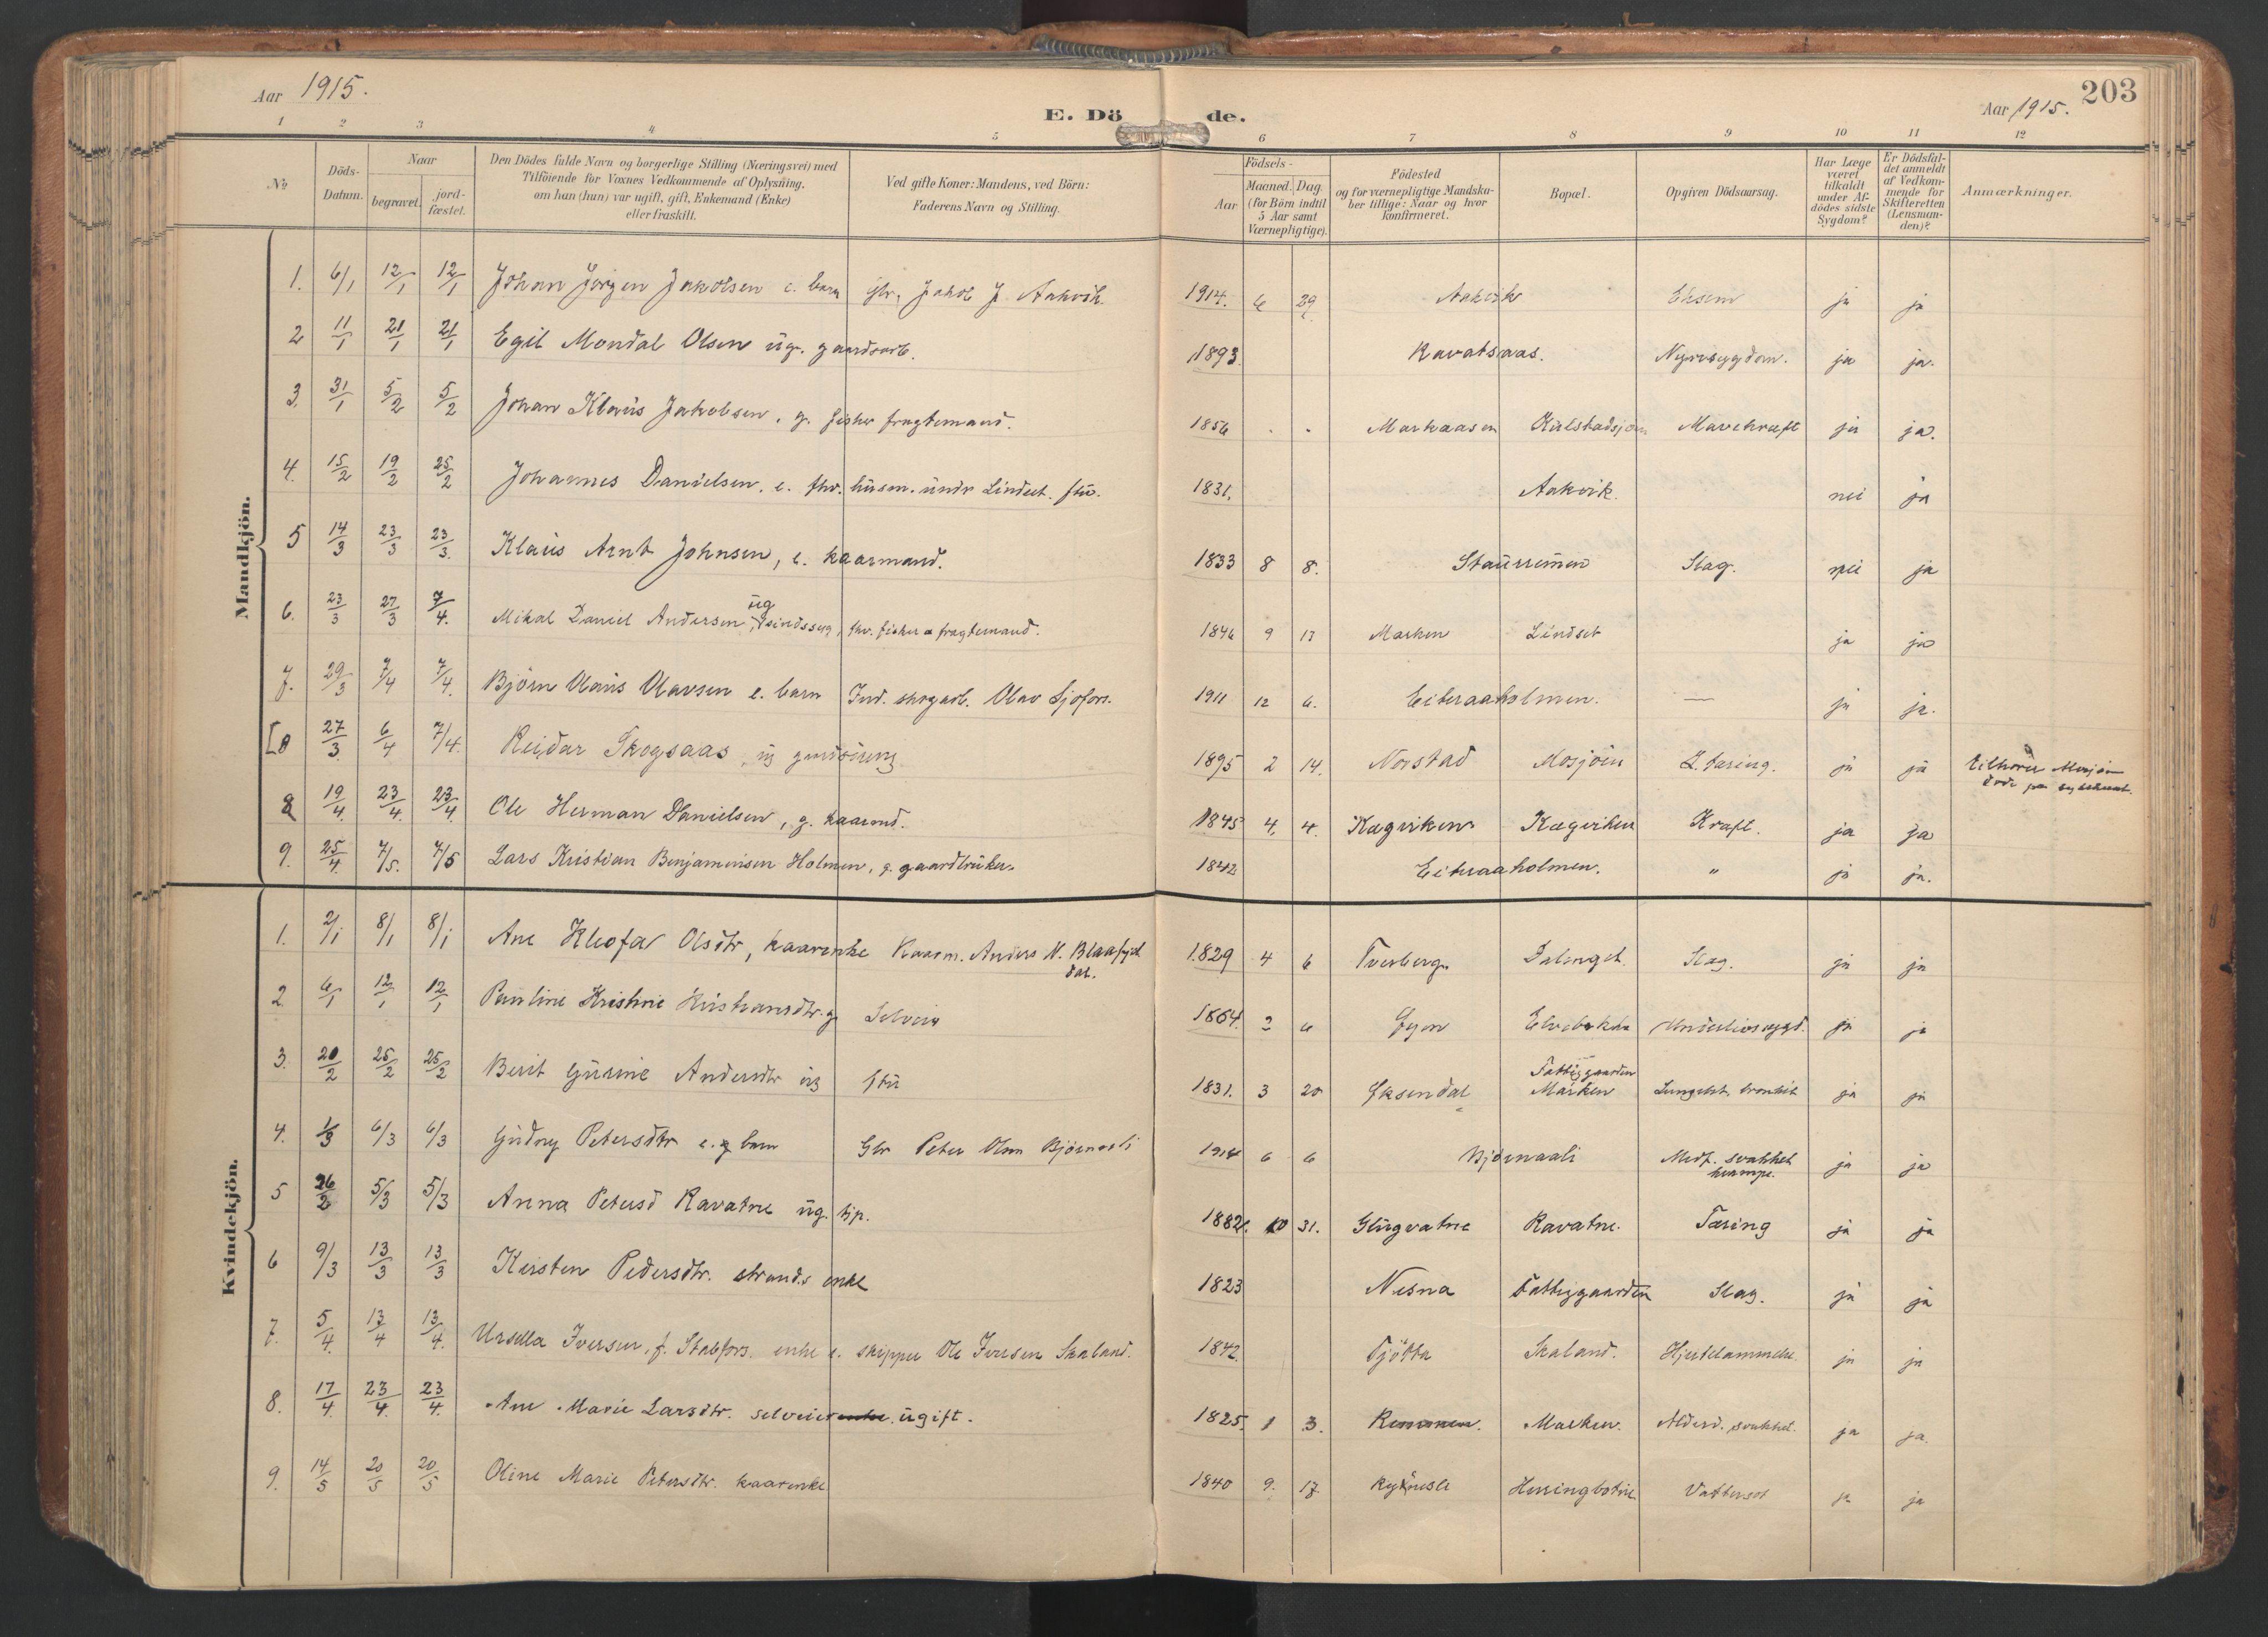 Aar 1915.
E. Döde.
Aar 1915.
203
1 2 3 4 5 6 7 8 9 10 11 12
№
Döds-Datum.
Naar
begravet.
jord-fæstet.
Den Dödes fulde Navn og borgerlige Stilling (Næringsvei) med
Tilföiende for Voxnes Vedkommende af Oplysning.
om han (hun) var ugift, gift, Enkemand (Enke)
eller fraskilt.
Ved gifte Koner: Mandens, ved Börn:
Faderens Navn og Stilling.
Födsels-
Aar
Maaned. Dag.
(for Börn indtil
5 Aar samt
Værnepligtige).
Födested
og for værnepligtige Mandska-
ber tillige: Naar og hvor
konfirmeret.
Bopæl.
Opgiven Dödsaarsag.
Har Læge
været
tilkaldt
under Af-
dödes sidste
Sygdom?
Er Dödsfal-
det anmeldt
af Vedkom-
mende for
Skifteretten
(Lensman-
den)?
Anmærkninger.
Mandkjön.
1. 6/1 12/1 12/1 Johan Jørgen Jakobsen e. barn Jakob J. Aakvik. 1914. 6 29 Aakvik Eksem ja ja
2 11/1 21/1 21/1 Egil Mondal Olsen ug. gaardsarb. 1893. Ravatsaas. Nyresygdom. ja ja.
3. 31/1 5/2 5/2 Johan Klaus Jakobsen, g. fisker fragtemand. 1856 Markaasen Kulstadsjøen Mavekræft ja ja.
4. 15/2 19/2 25/2 Johannes Danielsen. e. fhv. husm. under Lindset. 1831. Aakvik. nei ja
5 14/3 23/3 23/3. Klaus Arnt Johnsen, e. kaarmand. 1833 8 8. Staurremen Slag. nei ja
6. 23/3 27/3 7/4. Mikal Daniel Andersen ug sindssyg, fhv. fisker o fragtemand. 1846 9 13 Marken Lindset ja ja
7. 29/3 7/4 7/4. Bjørn Olaus Olavsen e. barn Ind. skogarb. Olav Sjofors. 1911 12 6. Eiteraaholmen. — ja ja.
[8 27/3. 6/4 7/4. Reidar Skogsaas, ug 1895 2 14. Norstad Mosjøen L. tæring. ja ja Mosjøen
8 19/4. 23/4. 23/4. Ole Herman Danielsen, g. kaarmd. 1845 4. 4. Kægviken Kægviken Kræft. ja ja
9. 25/4. 7/5. 7/5 Lars Kristian Benjaminsen Holmen, g. gaardbruker. 1842 Eiteraaholmen. " ja ja.
Kvindekjön.
1. 2/1 8/1 8/1 Ane Kleofa Olsdtr, kaarenke Kaarm. Anders N. Blaafjel
dal. 1829 4 6 Tverberg. Dalenget. Slag. ja ja
2. 6/1 12/1 12/1 Pauline Kristine Kristiansdtr. g Selveier 1864. 2 6 Elvebakken Underlivssygd. ja ja
3. 20/2 25/2 25/2 Berit Gurine Andersdtr ug 1831. 3 20 Eksendal Fattiggaarden
Marken bronkit ja ja
4. 1/3 6/3 6/3 Gudny Petersdtr e. g barn Gbr Peter Olsen Bjørnaali 1914 6 6 Bjørnaali Medf. svakhet
krampe. ja ja
5 26/2 5/3 5/3 Anna Petersd Ravatne ug. tjp. 1882. 10 31. Glugvatne Ravatne. Tæring ja ja
6 9/3 13/3 13/3 Kirsten Pedersdtr. strands enke 1823 Nesna Fattiggaarden Slag. ja ja
7. 5/4. 13/4 13/4. Ursella Iversen, f. Stabfors. enke e. skipper Ole Iversen Skaland. 1842. Tjøtta Skaland. Hjertelammelse. ja ja
8. 17/4. 23/4. 23/4. Ane Marie Larsdtr. selveierenke. ugift. 1825. 1 3. Remmen. Marken. Alderd. svakhet. ja ja.
9. 14/5 20/5 20/5 Oline Marie Petersdtr. kaarenke 1840 9. 17 Herringbotne Vattersot ja ja